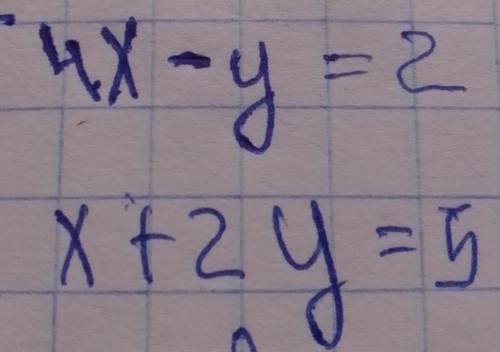 4x - y = 2
x + 2y = 5